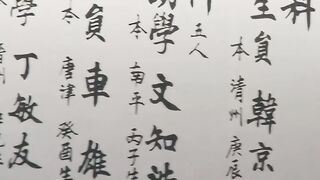 科
生員 韓京
本 清州 庚辰
五人
幼學 文知
本 南平 丙子生
員 車雄
本 唐津 癸酉生
學 丁敏友